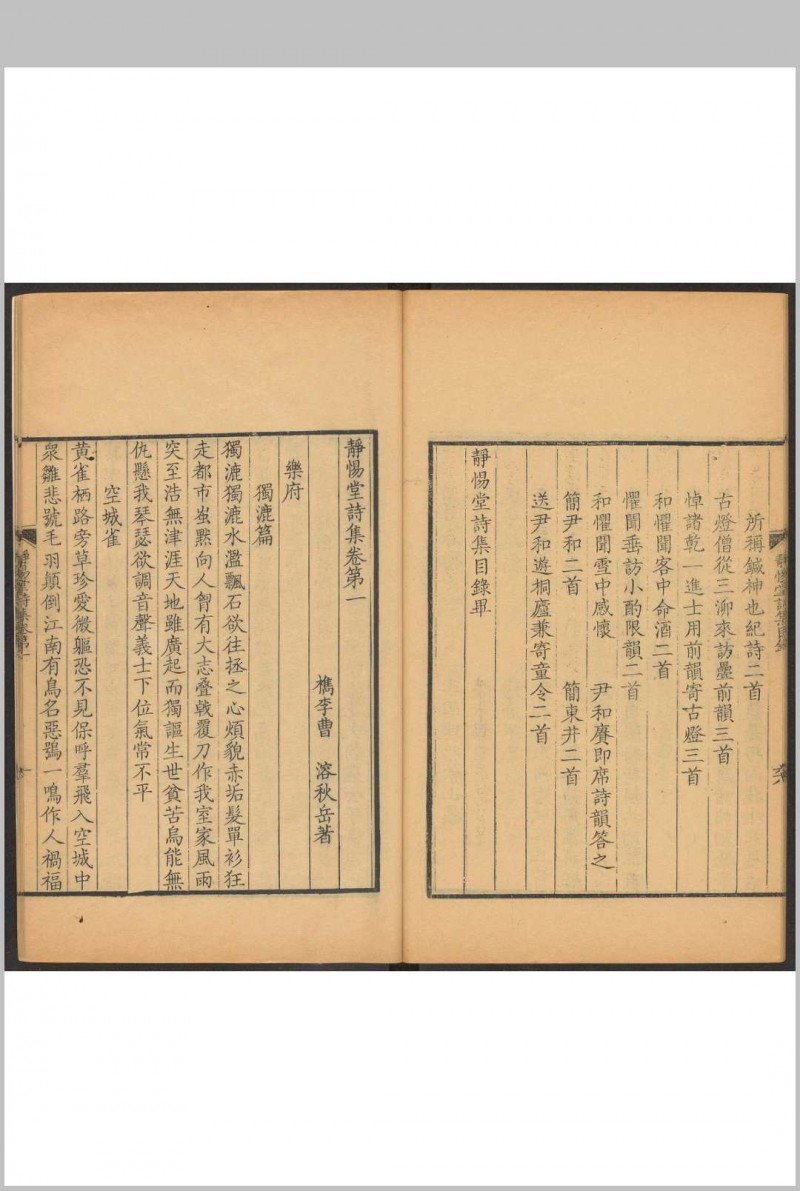 所稱鍼神也紀詩二首
古燈僧從三泖來訪疊前韻三首
悼諸乾一進士用前韻寄古燈三首
和懼聞客中命酒二首
懼聞垂訪小酌限韻二首
和懼聞雪中感懷 尹和賡即席詩韻答之
簡尹和二首 簡東井二首
送尹和遊桐廬兼寄童令二首
靜惕堂詩集目錄畢
靜惕堂詩集卷第一
檇李曹 溶秋岳著
樂府
獨漉篇
獨漉獨漉水濫飄石欲往拯之心煩貌赤垢髮單衫狂
走都市蚩黙向人曾有大志叠戟覆刀作我室家風雨
突至浩無津涯天地雖廣起而獨謳生世貧苦烏能無
仇懸我琴瑟欲調音聲義士下位氣常不平
空城雀
黃雀栖路旁草珍愛微軀恐不見保呼羣飛入空城中
衆雛悲號毛羽顛倒江南有鳥名惡鴞一鳴作人禍福